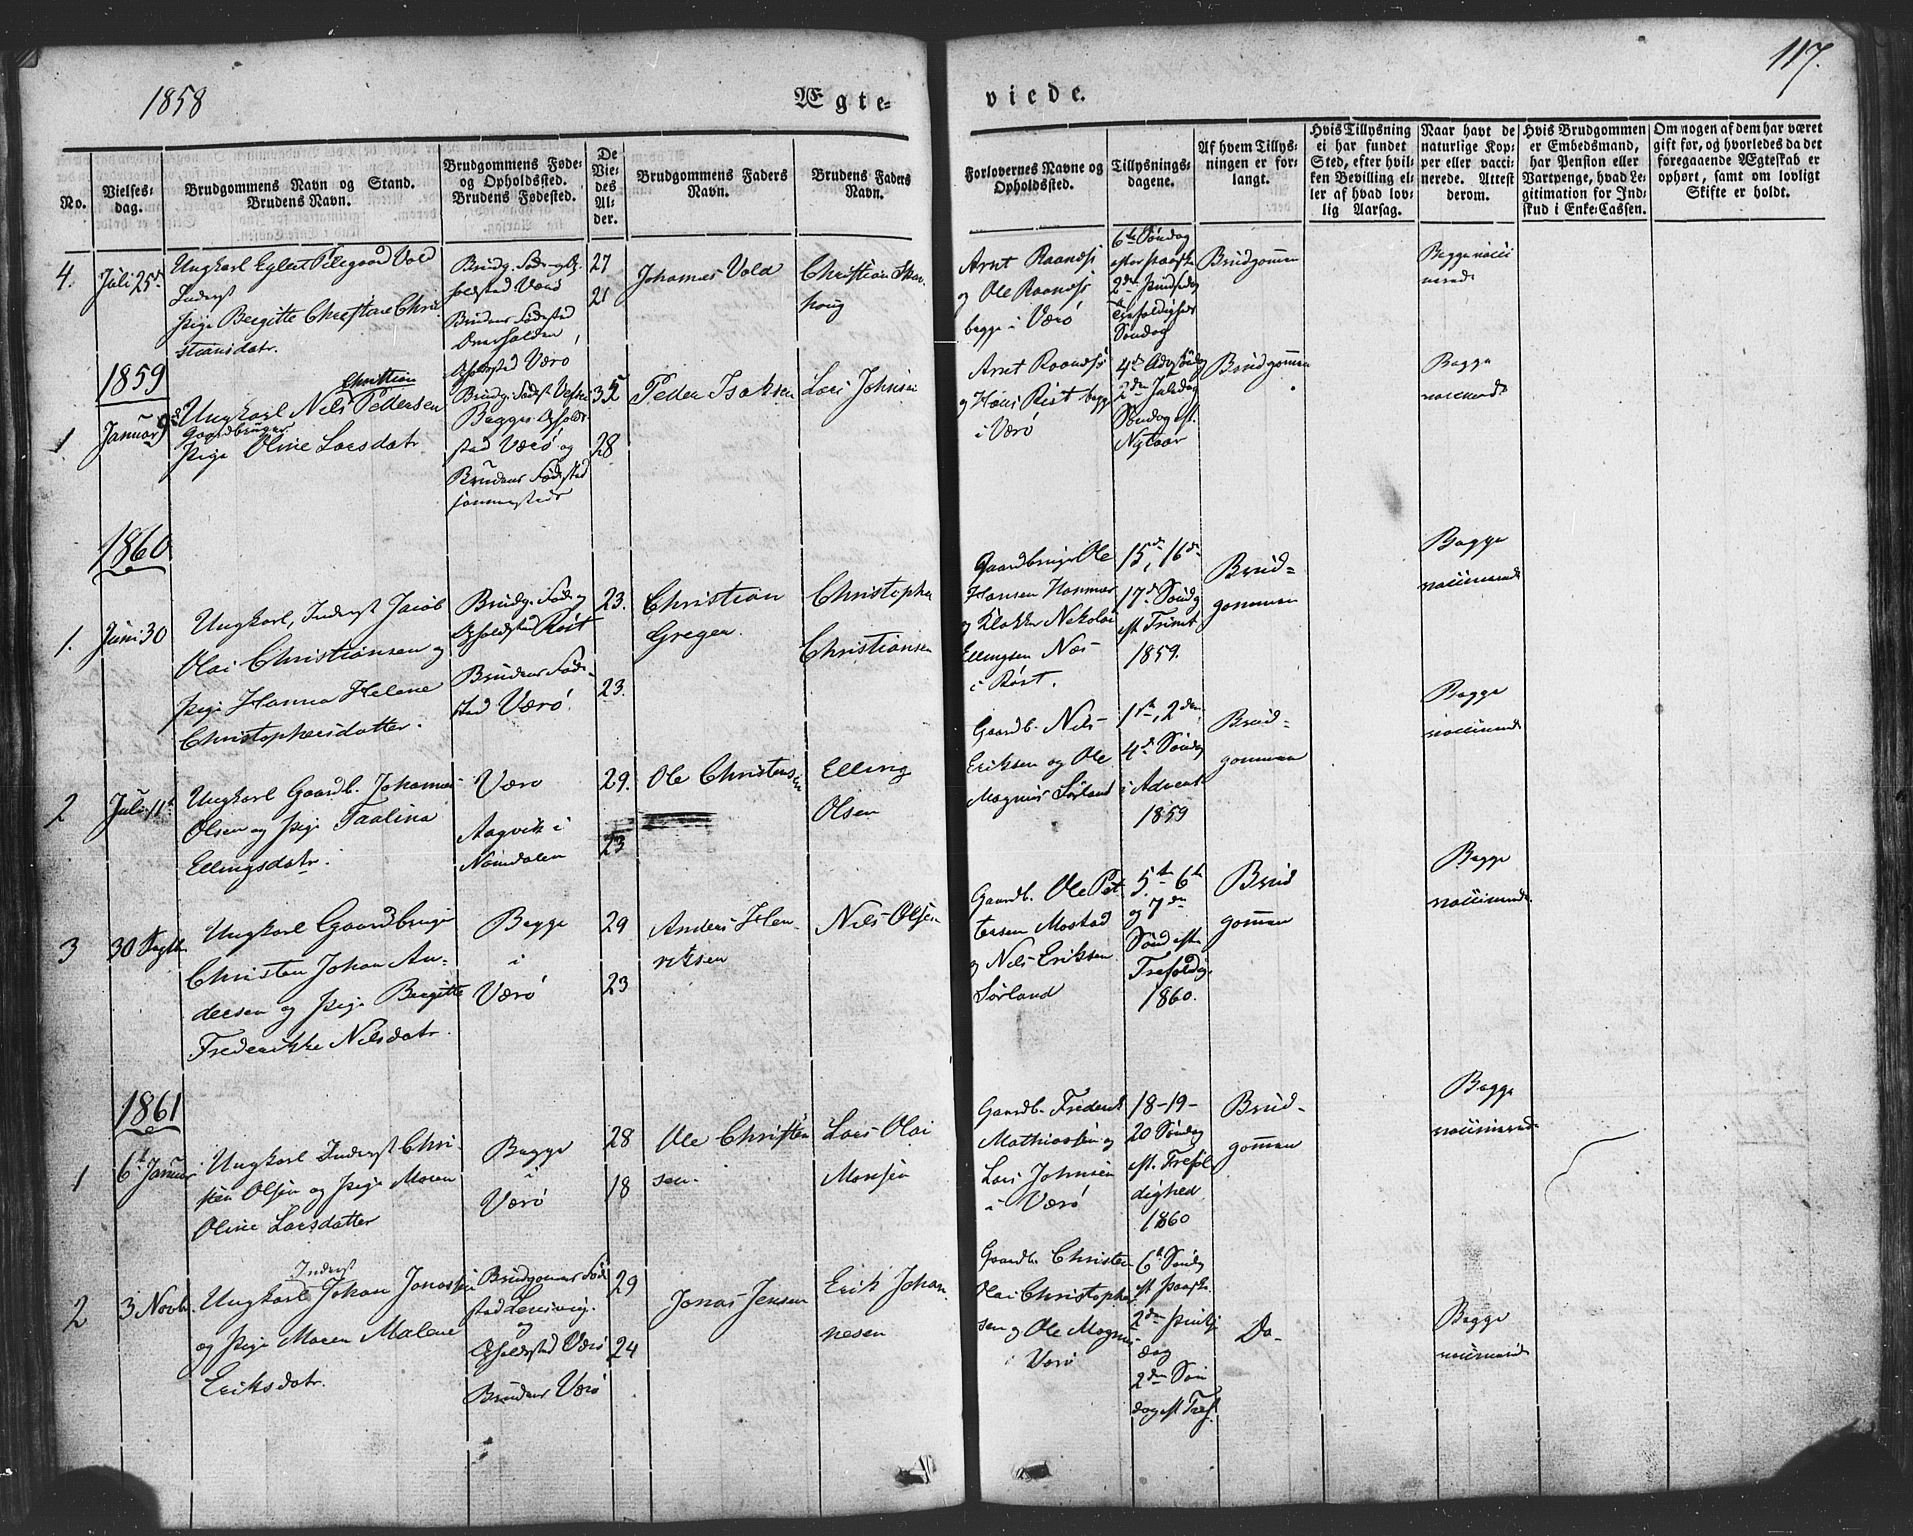 117.
1858
Ægte-
viede.
No.
Vielses-
dag.
Brudgommens Navn og Stand.
Brudens Navn.
Brudgommens Føde-
og Opholdssted.
Brudens Fødested.
De
Vie-
des
Al-
der.
Brudgommens Faders
Navn.
Brudens Faders
Navn.
Forlovernes Navne og
Opholdssted.
Tillysnings-
dagene.
Af hvem Tillys-
ningen er for-
langt.
Hvis Tillysning
ei har fundet
Sted, efter hvil-
ken Bevilling el-
ler af hvad lov-
lig Aarsag.
Naar havt de
naturlige Kop-
per eller vacci-
nerede. Attest
derom.
Hvis Brudgommen
er Embedsmand,
har Pension eller
Vartpenge, hvad Le-
gitimation for Ind-
skud i Enke-Cassen.
Om nogen af dem har været
gift for, og hvorledes da det
foregaaende Ægteskab er
ophørt, samt om lovligt
Skifte er holdt.
4.
Juli 25de
Ungkarl Eglert Pilegaard Vold
Inderst
Pige Bergitte Christiane Chri
stiansdatr.
Brudg. Føde- og Op
holdsted Værø
Brudens Fødested
Overhalden,
Opholdsted Værø
27
21
Johannes Vold
Christian Skar
houg
Arnt Raanæs
og Ole Raanæs
begge i Værø
6te Søndag
efter Paaske
2den Pindsedag
Trefoldigheds
Søndag
Brudgommen
Begge vacci
nerede
1859
1
Januar 9de
Christian
Ungkarl Nils Pedersen
Gaardbruger
Pige Oline Larsdatr.
Brudg. Fødest.
Begges Ophold-
sted Værø og
Brudens Fødested
sammesteds
35
28
Peder Isaksen
Lars Johnsen
Arnt Raanæs
og Hans Rist begge
i Værø
4de Adv. Søndag
2den Juledag
Søndag eft.
Nytaar
Brudgommen
Begge
vaccinerede
1860
1.
Juni 30
Ungkarl, Inderst Jacob
Olai Christiansen og
Pige Hanna Helene
Christophersdatter.
Brudg. Føde og
Opholdsted Røst
Brudens Føde-
sted Værø.
23.
23.
Christian
Gregen.
Christopher
Christiansen
Gaardbruger Ole
Hansen Hammer
og Klokker Nikolai
Ellingsen Næs
i Røst.
15de, 16de
17de Søndag
eft. Trinit
1859.
Brud-
gommen
Begge
vaccinerede
2
Juli 11te
Ungkarl Gaardb. Johannes
Olsen og Pige Taalina
Ellingsdatr.
Værø
Aagvik i
Namdalen
29.
23
Ole Christensen
Elling
Olsen
Gaardb. Nils
Eriksen og Ole
Magnus Sørland
1ste, 2den
4de Søndag
i Advent
1859
Brud-
gommen
Begge
vaccinerede
3
30 Septbr
Ungkarl Gaardbruger
Christen Johan An-
dersen og Pige Bergitte
Frederikke Nilsdatr.
Begge
i
Værø
29
23
Anders Hen-
riksen
Nils Olsen
Gaardb. Ole Pet
ersen Mostad
og Nils Eriksen
Sørland
5te 6te
og 7de
Sønd. efter
Trefoldig.
1860.
Brud
gommen
Begge
vaccinerede
1861
1
6te Januar
Ungkarl Inderst Chri-
sten Olsen og Pige Maren
Oline Larsdatter
Begge
i
Værø
28
18
Ole Christen
sen.
Lars Olai
Monsen
Gaardb. Frederik
Mathiassen og
Lars Johnsen
i Værø
18-19-
20 Søndag
eft. Trefol
dighed
1860
Brud-
gommen
Begge
vaccinerede
2
3 Novb.
Inderst
Ungkarl Johan Jonassen
og Pige Maren Malene
Eriksdatr.
Brudgommens Føde
sted
og
Opholdsted Værø
Brudens Værø
29
24
Jonas Jensen
Erik Johan
nesen
Gaardb. Christen
Olai Christopher
sen og Ole Magnus
i Værø
6te Søndag
eft. Paaske
2den Pintse
dag
2den Søn
dag eft. Tref.
Do-
Begge
vaccinerede